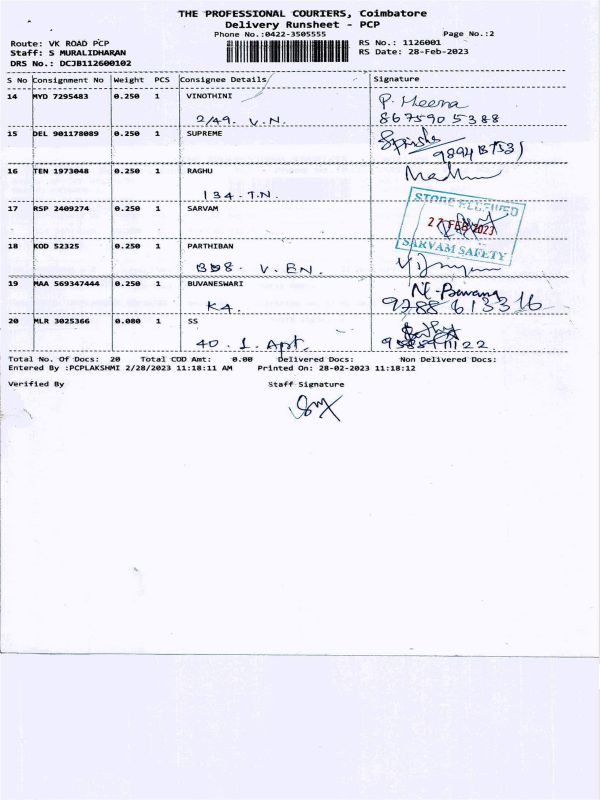 THE PROFESSIONAL COURIERS, Coimbatore
Delivery Runsheet - PCP
Phone No.:0422-3505555 Page No.:2
Route: VK ROAD PCP RS No.: 1126001
Staff: S MURALIDHARAN RS Date: 28-Feb-2023
DRS No.: DCJB112600102
S No Consignment No Weight PCS Consignee Details Signature
14 MYD 7295483 0.250 1 VINOTHINI P. Meena
2/49. V.N. 8675905388
15 DEL 901178089 0.250 1 SUPREME
16 TEN 1973048 0.250 1 RAGHU
134. T.N.
17 RSP 2409274 0.250 1 SARVAM
STORE RECEIVED
27 FEB 2023
SARVAM SAFETY
18 KOD 52325 0.250 1 PARTHIBAN
V. EN.
19 MAA 569347444 0.250 1 BUVANESWARI
K4. 9788613316
20 MLR 3025366 0.080 1 SS
40. 1. Apt
Total No. Of Docs: 20 Total COD Amt: 0.00 Delivered Docs: Non Delivered Docs:
Entered By :PCPLAKSHMI 2/28/2023 11:18:11 AM Printed On: 28-02-2023 11:18:12
Verified By Staff Signature